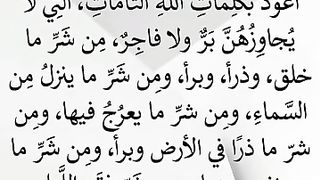 أعوذ بكلمات الله التامات، التي لا
يُجاوِزُهُنَّ بَرٌّ ولا فاجِرٌ، مِن شَرِّ ما
خلق، وذرأ، وبرأ، ومِن شَرِّ ما ينزلُ مِن
السَّماءِ، ومِن شرِّ ما يعرُجُ فيها، ومِن
شرّ ما ذرًا في الأرض وبرأ، ومِن شَرِّ ما